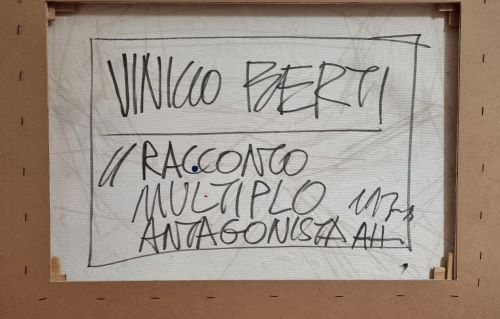 VINICIO BERTI
"RACCONTO
MULTIPLO
ANTAGONISTA